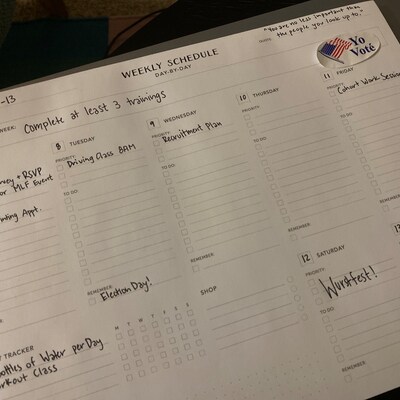 "You are no less important than
the people you look up to.
WEEKLY SCHEDULE
DAY-BY-DAY
Yo
Voté
-13
WEEK: Complete at least 3 trainings
RSVP
or MLF Event
Appt.
8 TUESDAY
PRIORITY
Driving Class 8AM
TO DO
REMEMBER
Election Day!
9 WEDNESDAY
PRIORITY
Recruitment Plan
TO DO
REMEMBER
10 THURSDAY
PRIORITY
TO DO
REMEMBER
11 FRIDAY
PRIORITY
Cohort Work Session
TO DO
REMEMBER
12 SATURDAY
PRIORITY
Wurstfest!
TO DO
REMEMBER
13
TRACKER
M T W T F S S
ottles of Water per Day
orkout Class
SHOP